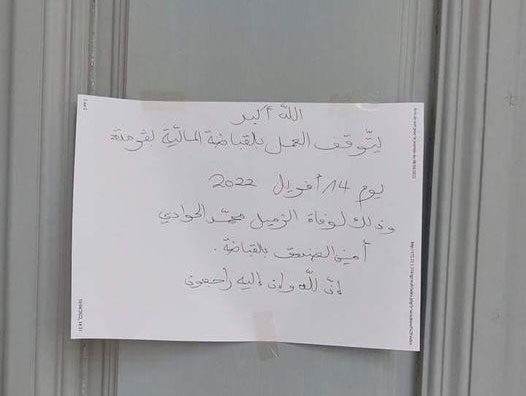 الله أكبر
يتوقف العمل بالقباضة المالية لقرمدة
يوم 14 أفريل 2022
وذلك لوفاة الزميل محمد الحوادي
أمين الصندوق بالقباضة .
إنّ لله وإن إليه راجعون